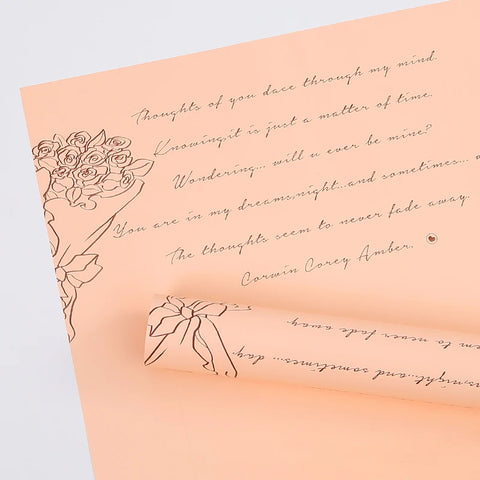 Thoughts of you dace through my mind.
Knowingit is just a matter of time.
Wondering... will u ever be mine?
You are in my dreams,night...and sometimes...
The thoughts seem to never fade away.
Corwin Corey Amber.
to never fade away.
night...and sometimes... day